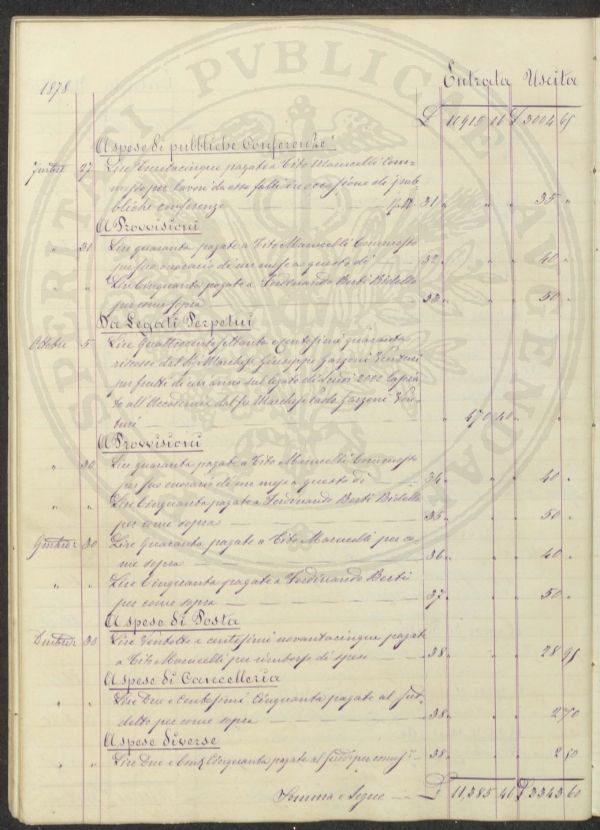 Entrata Uscita
1878
£ 10915 £ 3004 65
A spese di pubbliche Conferenze
7mbre 27 Lire Trentacinque pagate a Tito Marucelli Com-
messo per lavori da esso fatti in occasione di pub-
bliche conferenze 31 " " 35 "
A Provvisioni
" 31 Lire quaranta pagate a Tito Marucelli Commesso
per suo onorario di un mese a questo dì 32 " " 40 "
" " Lire Cinquanta pagate a Ferdinando Berti Bidello
per come sopra 33 " " 50 "
Da Legati Perpetui
Ottobre 5 Lire Quattrocentosettanta e centesimi quaranta
riscosse dal Marchese Giuseppe Garzoni Venturi
per frutti di un anno sul legato di Scudi 2000 lascia-
to all'Accademia dal fu Marchese Paolo Garzoni Ven-
turi " 470 40 " "
A Provvisioni
" 30 Lire quaranta pagate a Tito Marucelli Commesso
per suo onorario di un mese a questo dì 34 " " 40 "
" " Lire Cinquanta pagate a Ferdinando Berti Bidello
per come sopra 35 " " 50 "
9mbre 30 Lire Quaranta pagate a Tito Marucelli per co-
me sopra 36 " " 40 "
" " Lire Cinquanta pagate a Ferdinando Berti
per come sopra 37 " " 50 "
A spese di Posta
Dmbre 30 Lire Ventotto e centesimi novantacinque pagate
a Tito Marucelli per rimborso di spese 38 " " 28 95
A spese di Cancelleria
" " Lire Due e Centesimi Cinquanta pagate al Sud-
detto per come sopra 38 " " 2 50
A spese diverse
" " Lire Due e Cent. Cinquanta pagate al Sudd. per come s. 38 " " 2 50
Somma e Segue £ 11,385 40 £ 3343 60
SPERITATI PVBLICAE AVGENDAE